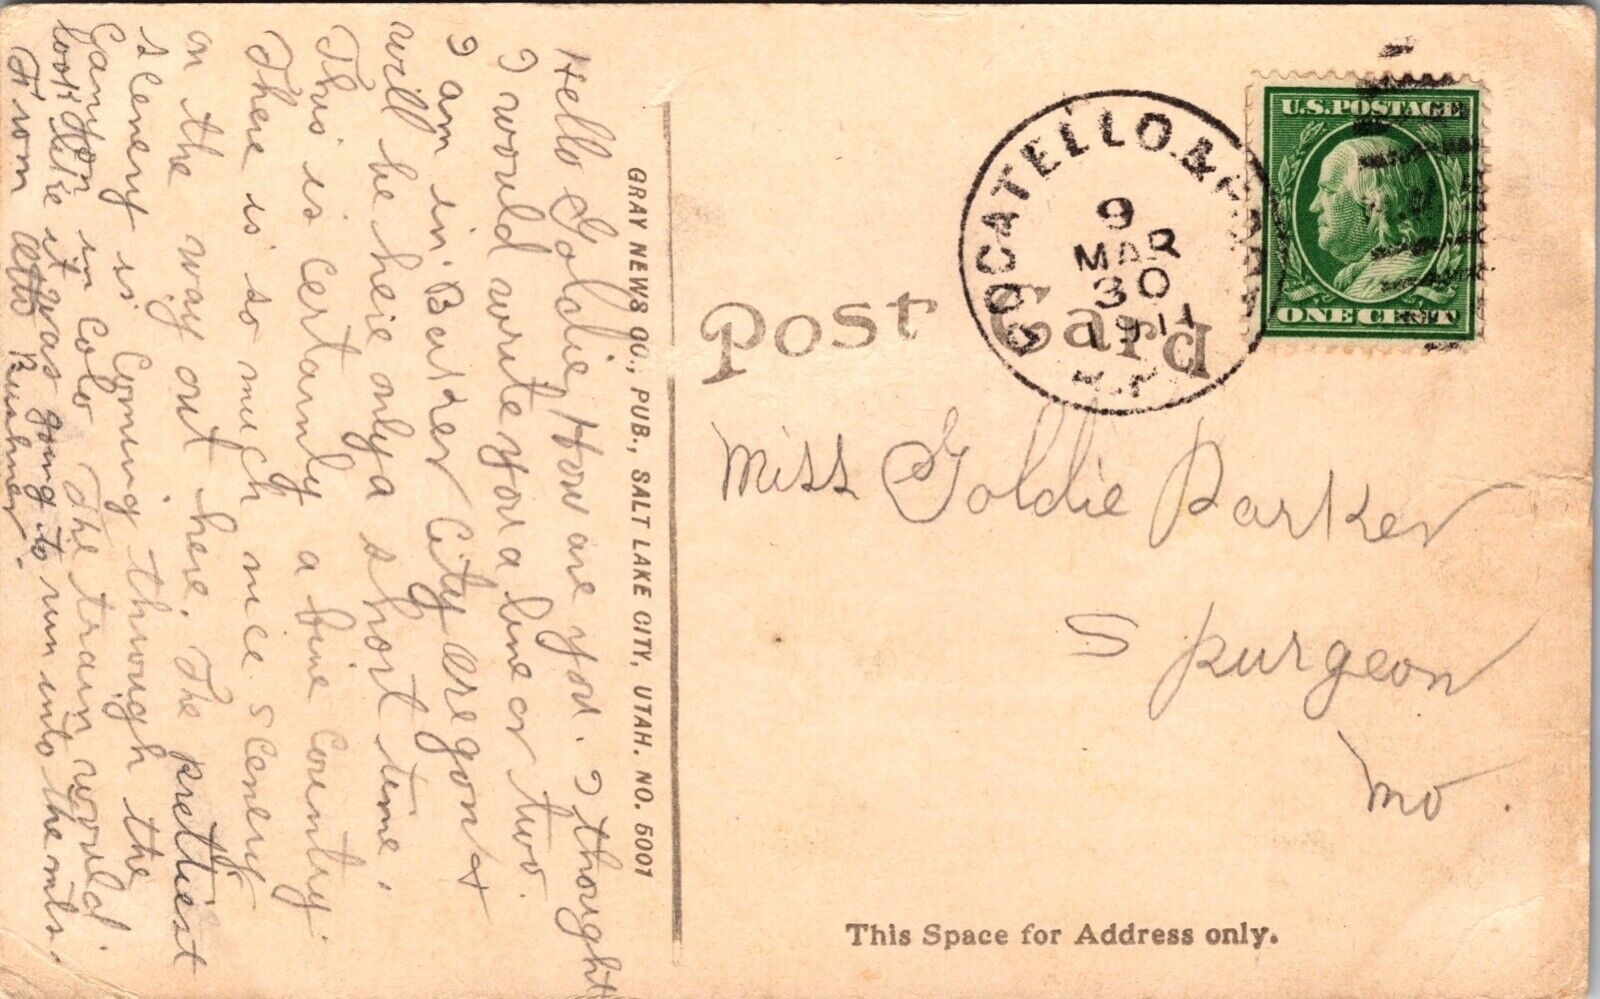 Hello Goldie, How are you. I thought
I would write you a line or two.
I am in Baker City Oregon &
will be here only a short time.
This is certainly a fine country
There is so much nice scenery
on the way out here. The prettiest
scenery is coming through the
Canyon in Colo The train would
look like it was going to run into the mts.
From Otto Bushner.
GRAY NEWS CO., PUB., SALT LAKE CITY, UTAH. NO. 5001
Post Card
POCATELLO &
9
MAR
30
1911
U.S. POSTAGE
ONE CENT
Miss Goldie Parker
Spurgeon
Mo.
This Space for Address only.